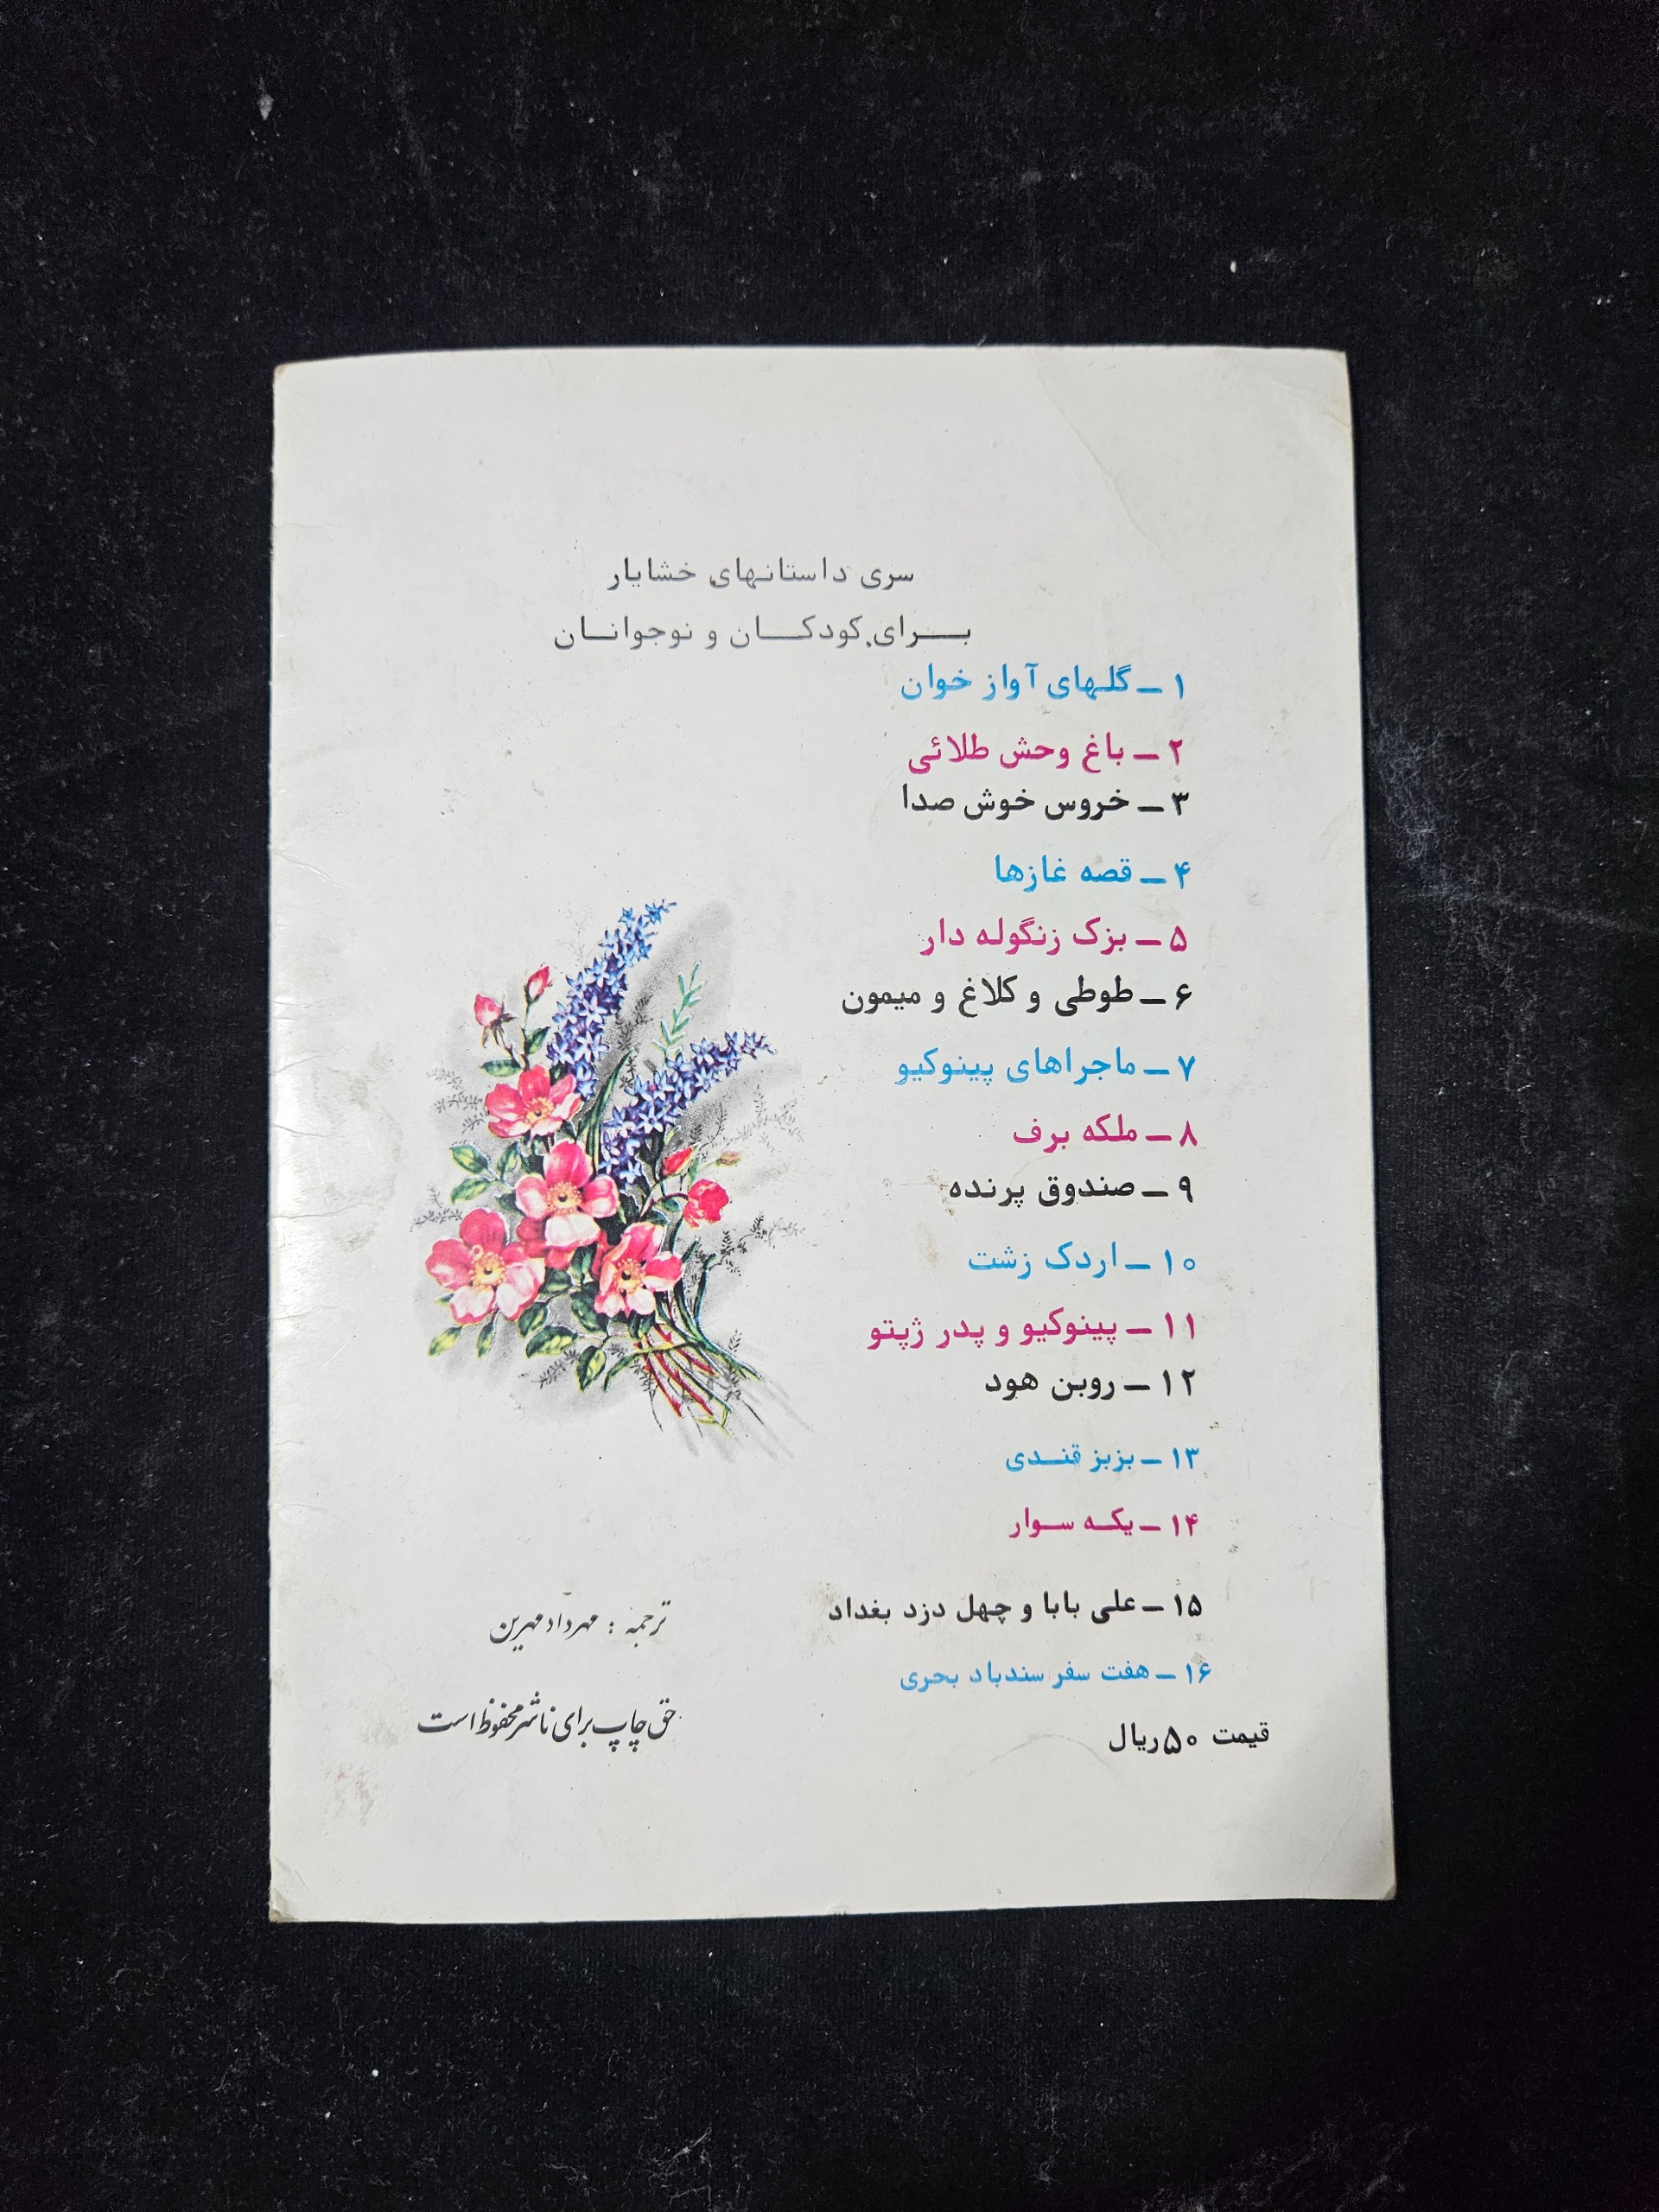 سری داستانهای خشایار
بــرای کودکــان و نوجوانــان
۱ ــ گلهای آواز خوان
۲ ــ باغ وحش طلائی
۳ ــ خروس خوش صدا
۴ ــ قصه غازها
۵ ــ بزک زنگوله دار
۶ ــ طوطی و کلاغ و میمون
۷ ــ ماجراهای پینوکیو
۸ ــ ملکه برف
۹ ــ صندوق پرنده
۱۰ ــ اردک زشت
۱۱ ــ پینوکیو و پدر ژپتو
۱۲ ــ روبن هود
۱۳ ــ بزبز قنــدی
۱۴ ــ یکــه ســوار
۱۵ ــ علی بابا و چهل دزد بغداد
۱۶ ــ هفت سفر سندباد بحری
قیمت ۵۰ ریال
ترجمه : مهرداد مهرین
حق چاپ برای ناشر محفوظ است